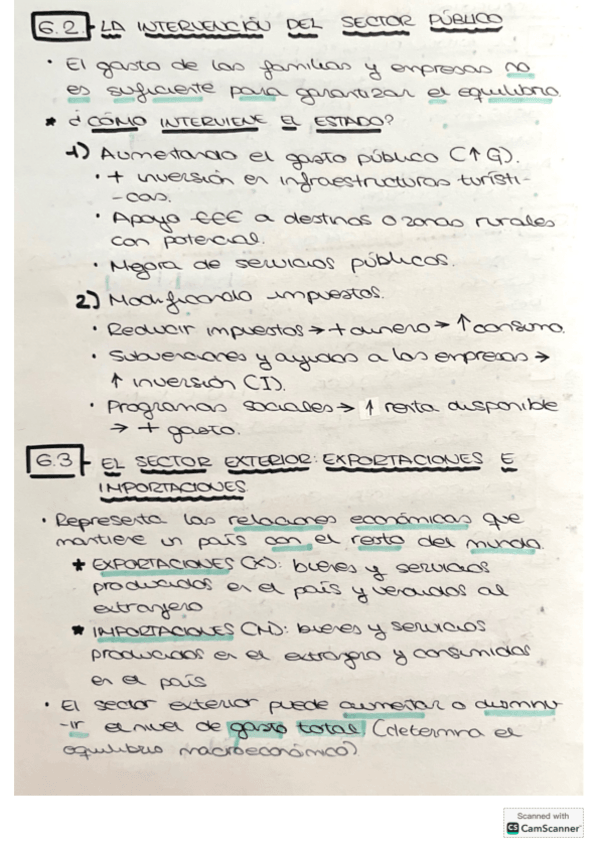 6.2 LA INTERVENCIÓN DEL SECTOR PÚBLICO
· El gasto de las familias y empresas no
es suficiente para garantizar el equilibrio.
* ¿CÓMO INTERVIENE EL ESTADO?
1) Aumentando el gasto público (↑G).
· + inversión en infraestructuras turísti-
-cas.
· Apoyo €€€ a destinos o zonas rurales
con potencial.
· Mejora de servicios públicos.
2) Modificando impuestos.
· Reducir impuestos → + dinero → ↑ consumo.
· Subvenciones y ayudas a las empresas →
↑ inversión (I).
· Programas sociales → ↑ renta disponible
→ + gasto.
6.3 EL SECTOR EXTERIOR: EXPORTACIONES E
IMPORTACIONES
· Representa las relaciones económicas que
mantiene un país con el resto del mundo.
* EXPORTACIONES (X): bienes y servicios
producidos en el país y vendidos al
extranjero
* IMPORTACIONES (M): bienes y servicios
producidos en el extranjero y consumidos
en el país
· El sector exterior puede aumentar o disminu-
-ir el nivel de gasto total (determina el
equilibrio macroeconómico)
Scanned with
CS CamScanner